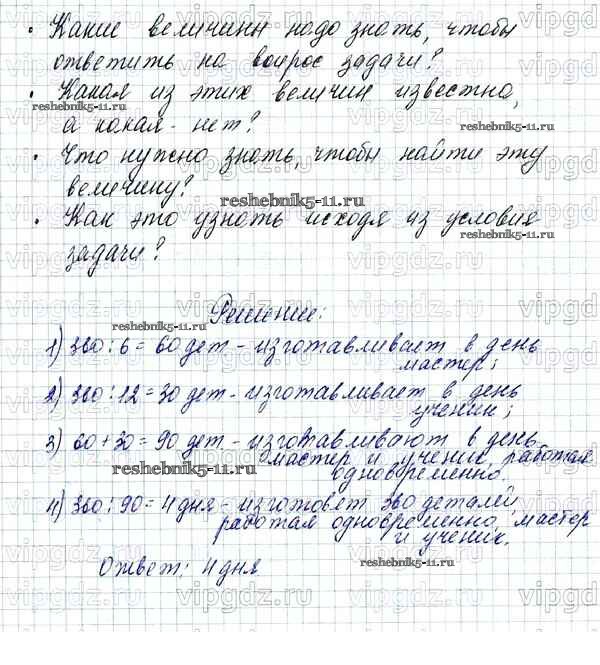 • Какие величины надо знать, чтобы
ответить на вопрос задачи?
• Какая из этих величин известна,
а какая - нет?
• Что нужно знать, чтобы найти эту
величину?
• Как это узнать исходя из условия
задачи?
Решение:
1) 360 : 6 = 60 дет - изготавливает в день
мастер;
2) 360 : 12 = 30 дет - изготавливает в день
ученик;
3) 60 + 30 = 90 дет - изготавливают в день
мастер и ученик, работая
одновременно.
4) 360 : 90 = 4 дня - изготовят 360 деталей,
работая одновременно, мастер
и ученик.
Ответ: 4 дня
reshebnik5-11.ru
reshebnik5-11.ru
reshebnik5-11.ru
reshebnik5-11.ru
reshebnik5-11.ru
reshebnik5-11.ru
reshebnik5-11.ru
vipgdz.ru